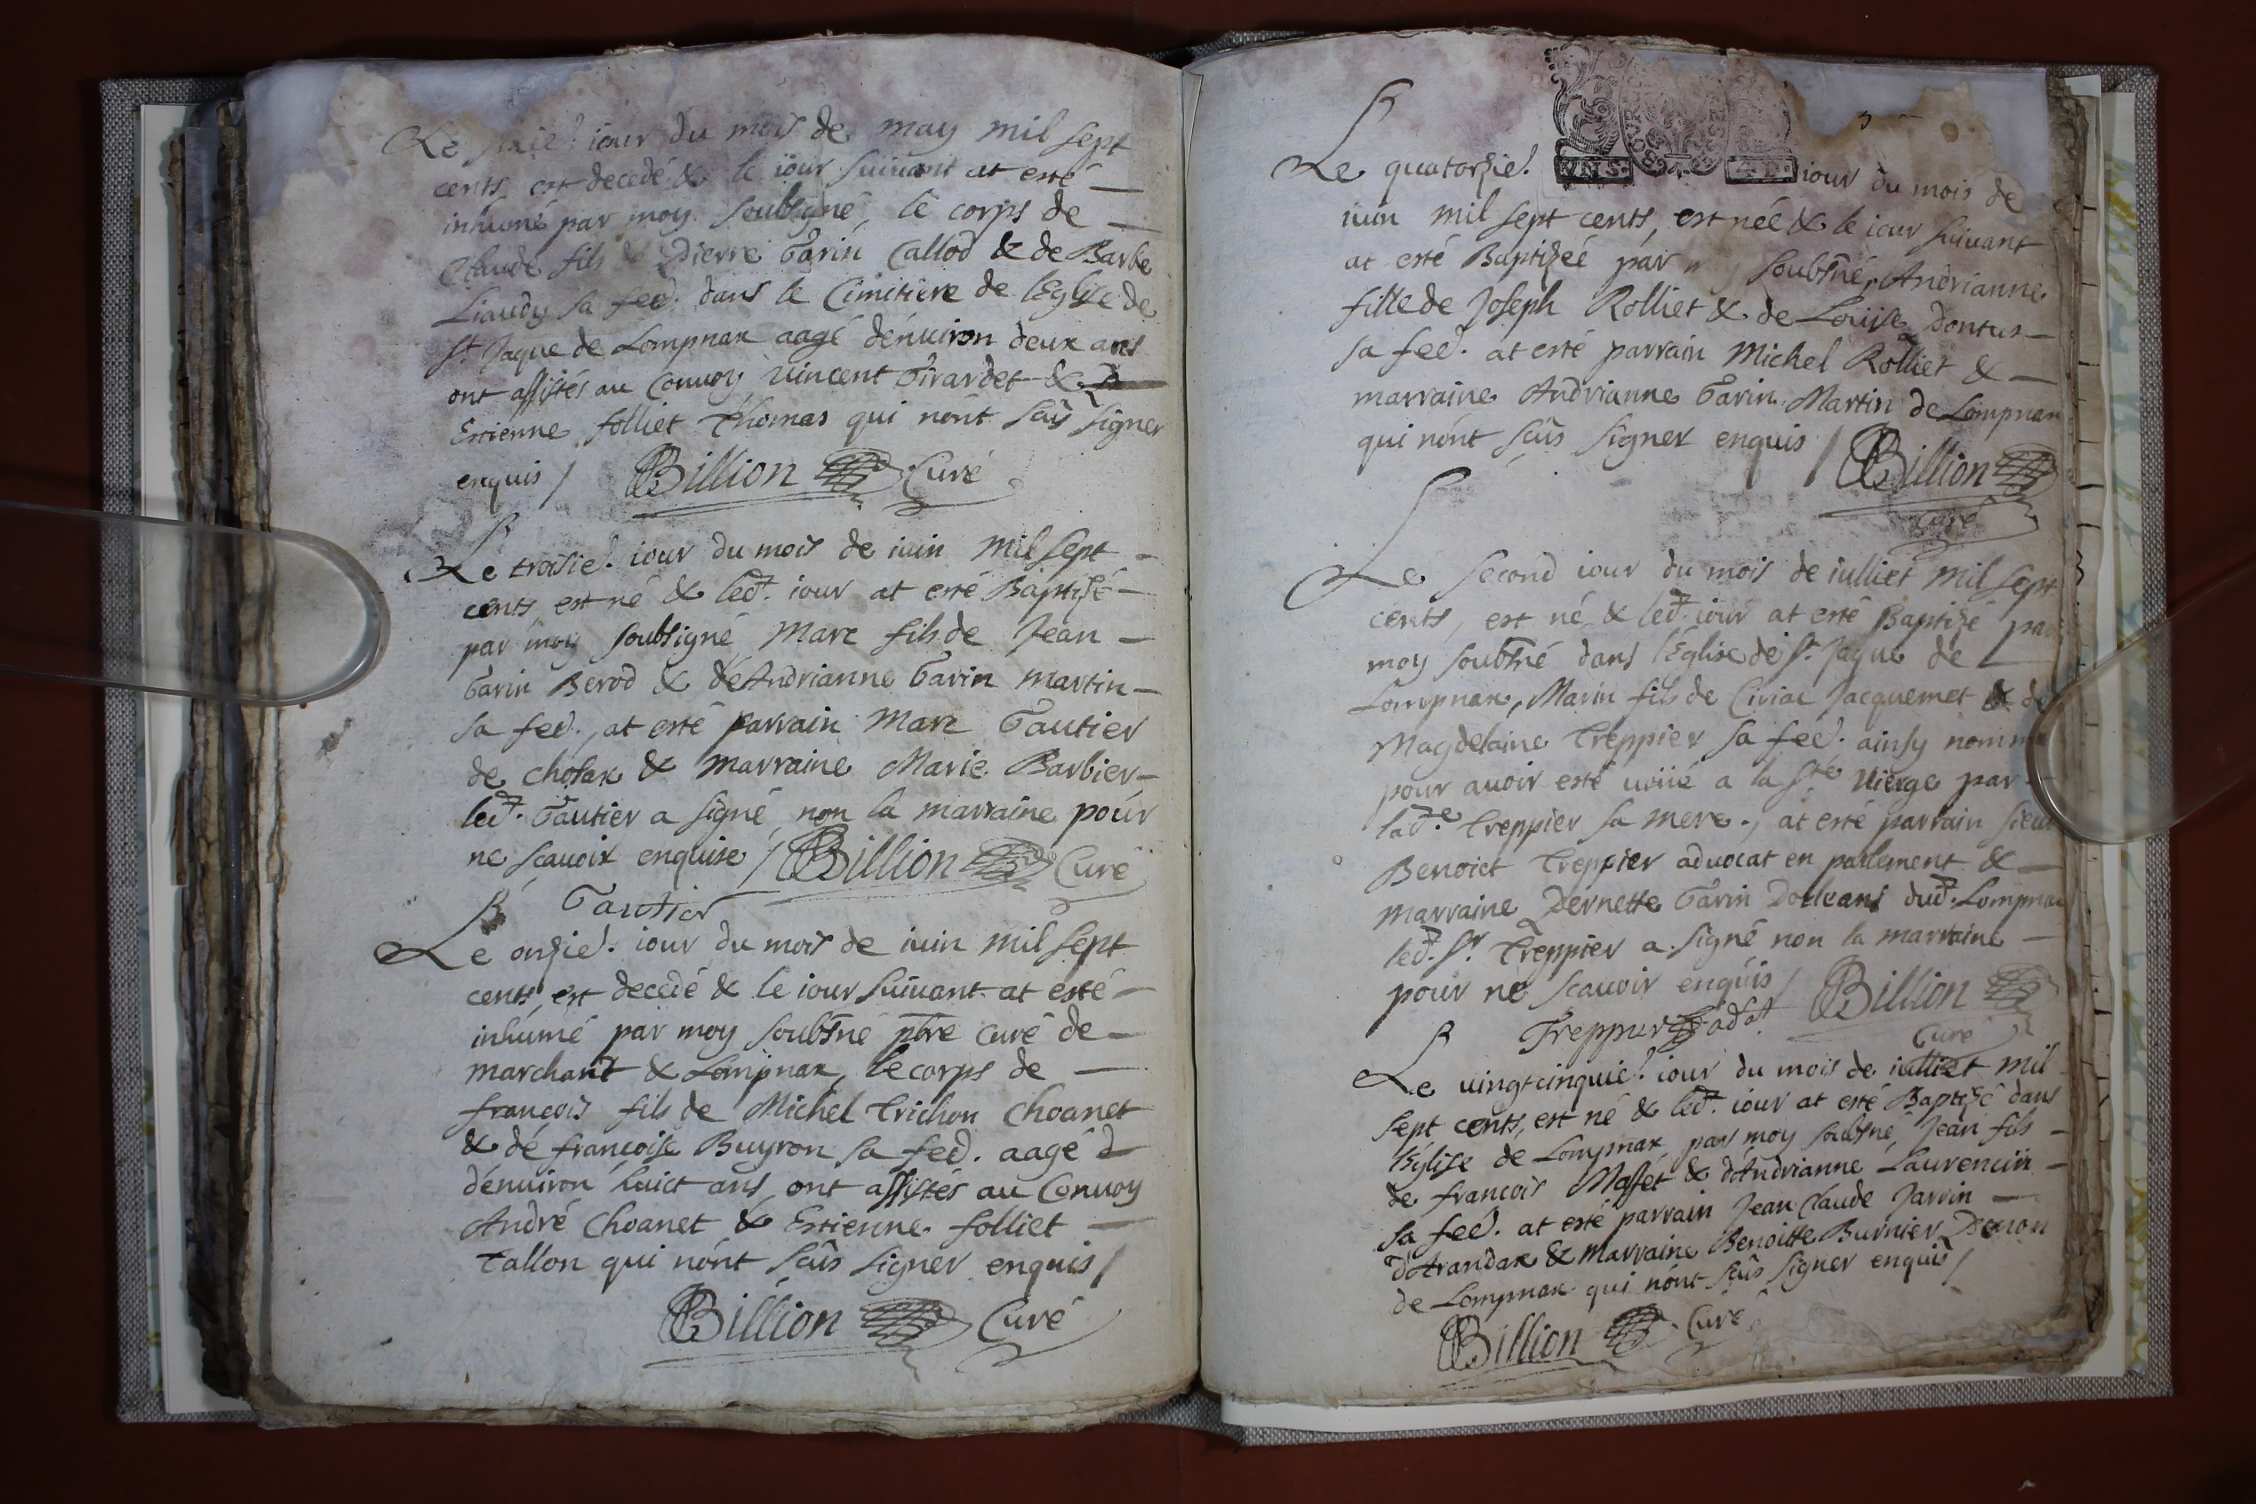 Le sixie. iour du mois de may mil sept
cents est decedé & le iour suiuant at esté
inhumé par moy soubsigné, le corps de
Claude fils de Pierre Garin Callod & de Barbe
Liaudy sa fee. dans le Cimitiere de l'Eglise de
St. Jaque de Lompnax aagé d'énuiron deux ans
ont assistés au Conuoy Vincent Girardet &
Estienne folliet Thomas qui n'ont sçûs signer
enquis / Billion Curé
Le troisie. iour du mois de iuin mil sept
cents est né & led. iour at esté Baptizé
par moy soubsigné Marc fils de Jean
Garin Berod & de Andrianne Garin Martin
sa fee., at esté parrain Marc Gautier
de Chosax & marraine Marie Barbier
led. Gautier a signé non la marraine pour
ne scauoir enquise / Billion Curé
Gautier
Le onzie. iour du mois de iuin mil sept
cents, est decedé & le iour suiuant at esté
inhumé par moy soubsné pbre curé de
marchant & Lompnax, le corps de
françois fils de Michel Trichon Choanet
& de françoise Buyron sa fee. aagé d
d'énuiron huict ans ont assistés au Conuoy
André Choanet & Estienne folliet
Tallon qui n'ont sçûs signer enquis /
Billion Curé
3
VNS. 4 D.
Le quatorzie. iour du mois de
iuin mil sept cents, est née & le iour suiuant
at esté Baptizéé par soubsné, Andrianne
fille de Joseph Rolliet & de Louise Pontus
sa fee. at esté parrain Michel Rolliet &
marraine Andrianne Garin Martin de Lompnax
qui n'ont sçûs signer enquis / Billion
Curé
Le second iour du mois de iulliet mil sept
cents, est né & led. iour at esté Baptizé par
moy soubsné dans l'Eglise de St. Jaque de
Lompnax, Marin fils de Ciriac Jacquemet & de
Magdelaine Treppier sa fee. ainsy nommé
pour auoir esté voüé a la Ste. Vierge par
lade. Treppier sa mere., at esté parrain sieur
Benoict Treppier aduocat en parlement &
marraine Pernette Garin Dorleans dud. Lompnax
led. Sr. Treppier a signé non la marraine
pour ne scauoir enquis / Billion
Treppier Curé
Le uingtcinquie. iour du mois de iulliet mil
sept cents, est né & led. iour at esté Baptizé dans
l'Eglise de Lompnax par moy soubsné, Jean fils
de françois Masset & d'Andrianne Laurencin
sa fee. at esté parrain Jean Claude Jarrin
d'Arandax & marraine Benoitte Burnier
de Lompnax qui n'ont sçûs signer enquis /
Billion Curé